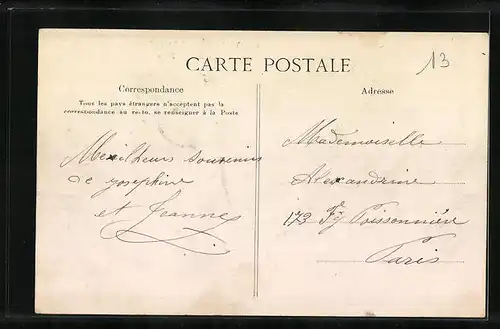 CARTE POSTALE
13
Correspondance
Tous les pays étrangers n'acceptent pas la
correspondance au recto, se renseigner à la Poste
Meuilheurs souvenirs
de josephine
et Jeanne
Adresse
Mademoiselle
Alexandrine
173 Fg Poissonnière
Paris